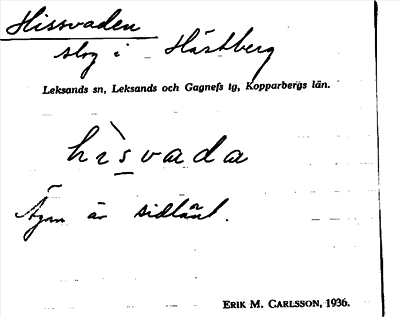 Hissvaden
slog i Hästberg
Leksands sn, Leksands och Gagnefs tg, Kopparbergs län.
hìs̲vada
Ägan är sidlänt.
ERIK M. CARLSSON, 1936.